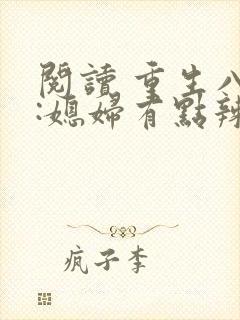 閱讀 重生八
:媳婦有點辣
疯子李